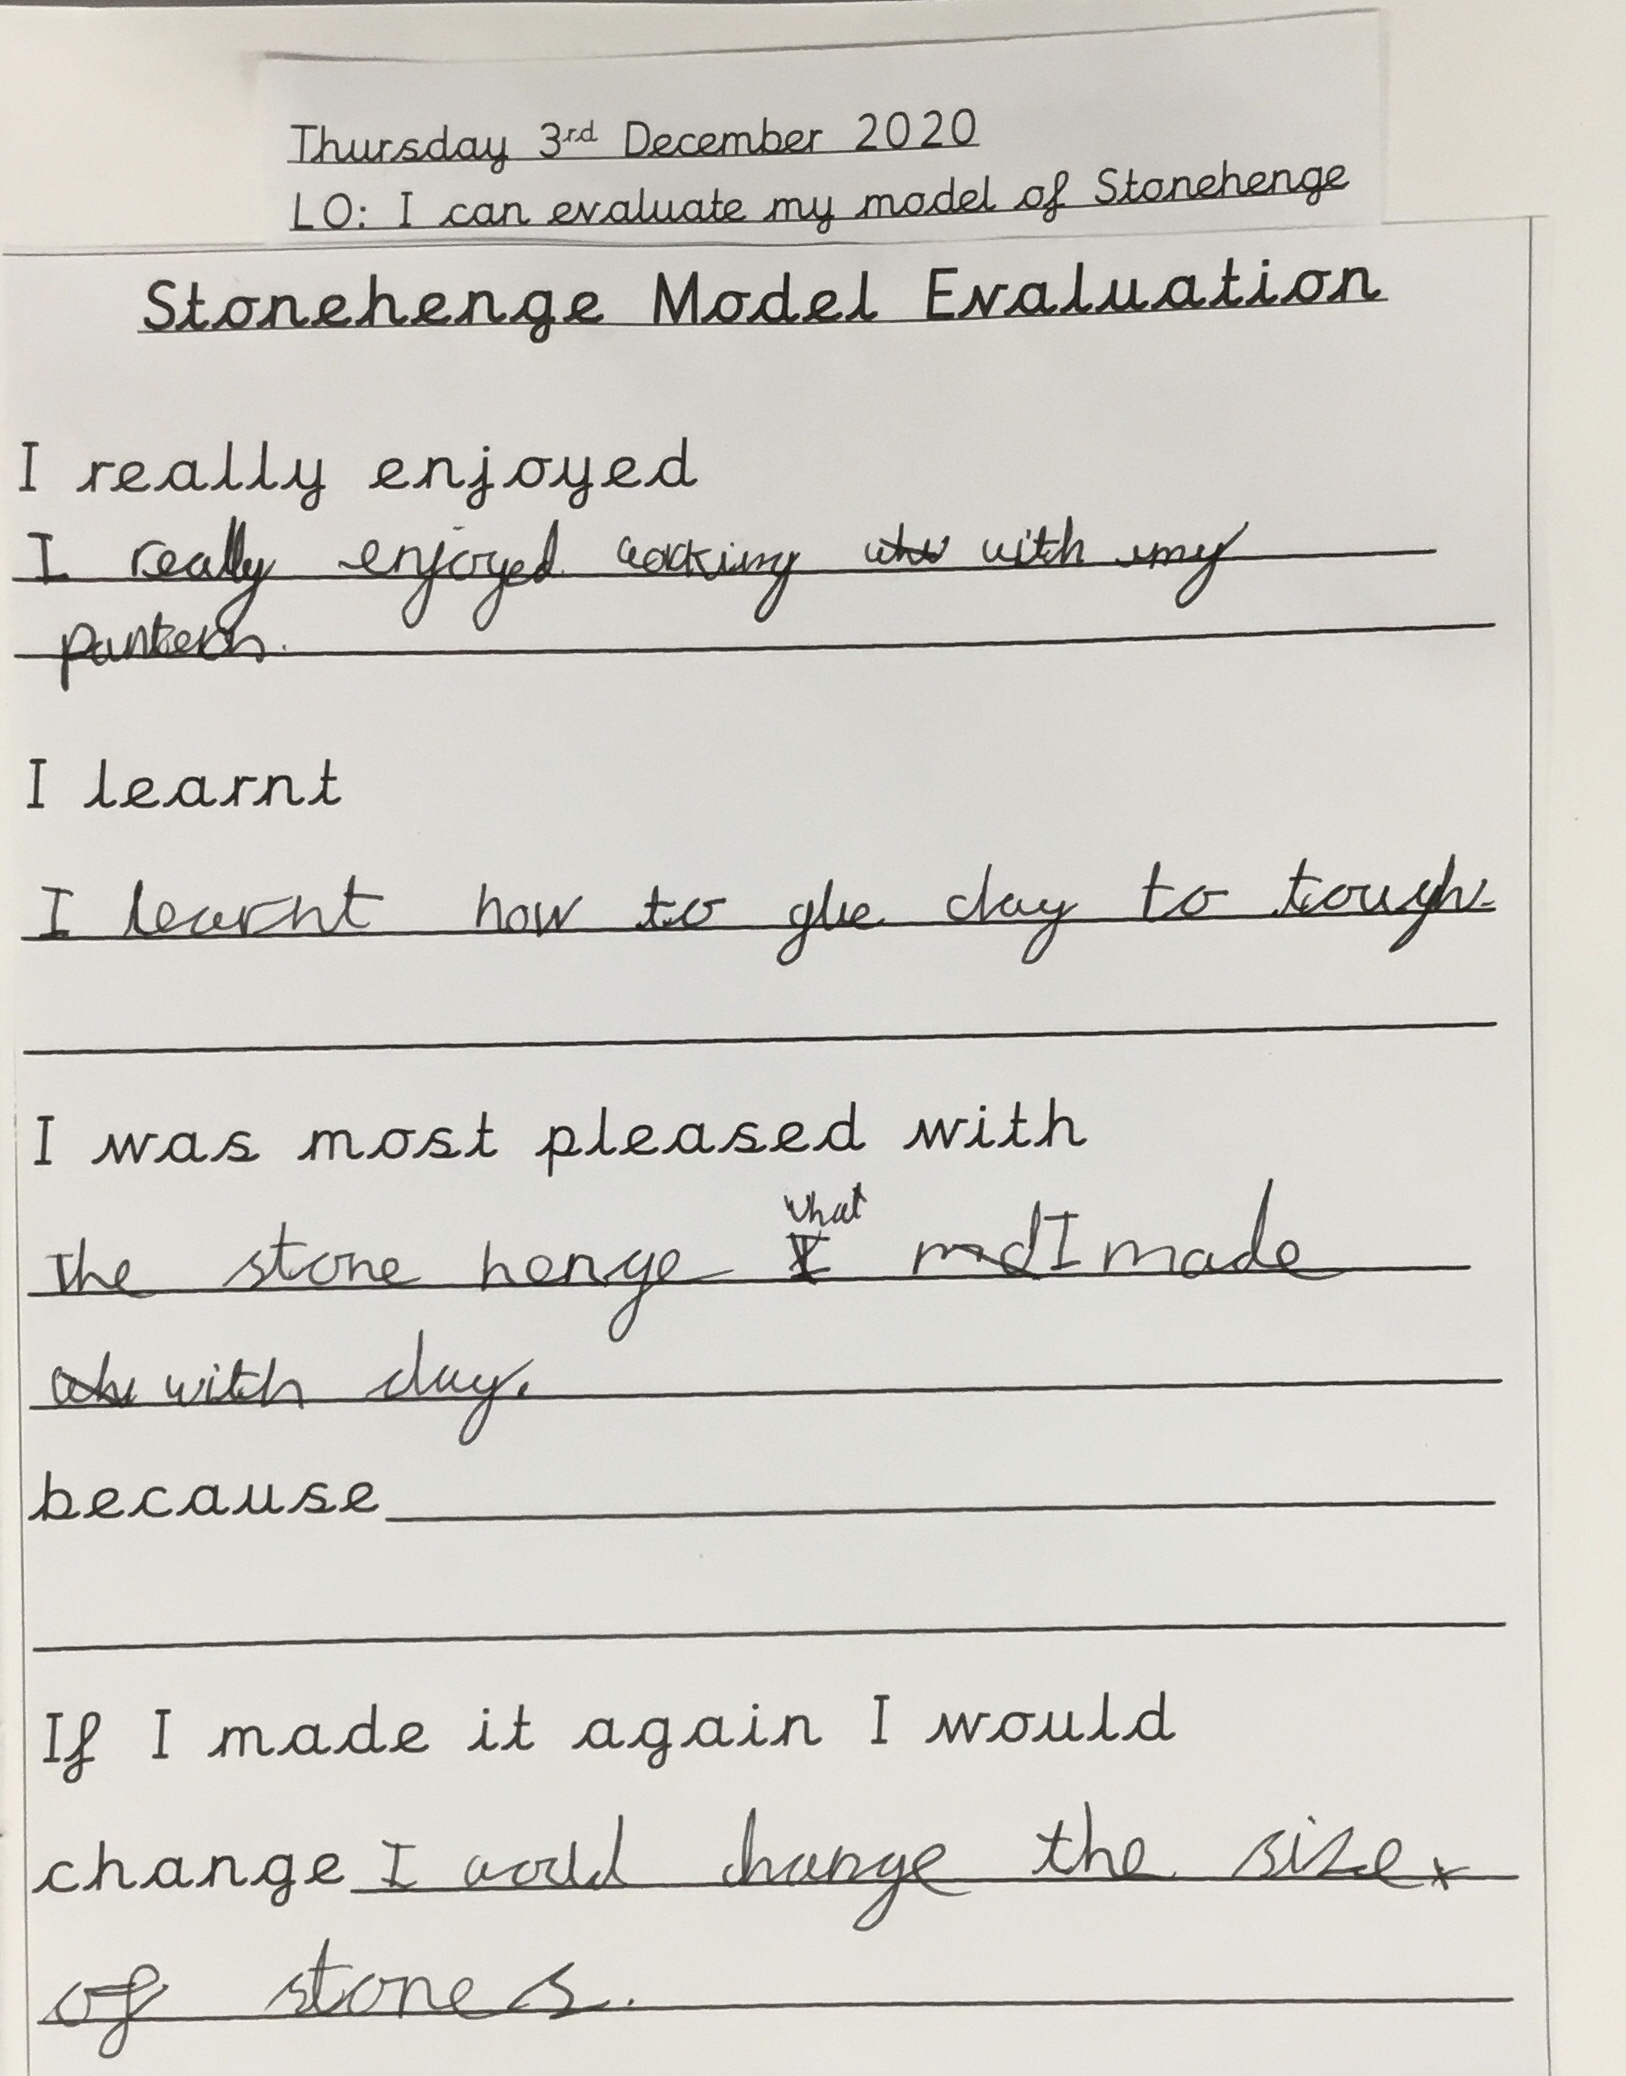 Thursday 3rd December 2020
LO: I can evaluate my model of Stonehenge
Stonehenge Model Evaluation
I really enjoyed
I really enjoyed with my
I learnt
I learnt how to glue clay to
I was most pleased with
what
the stone henge I made
with clay.
because
If I made it again I would
change I change the size
of stones.